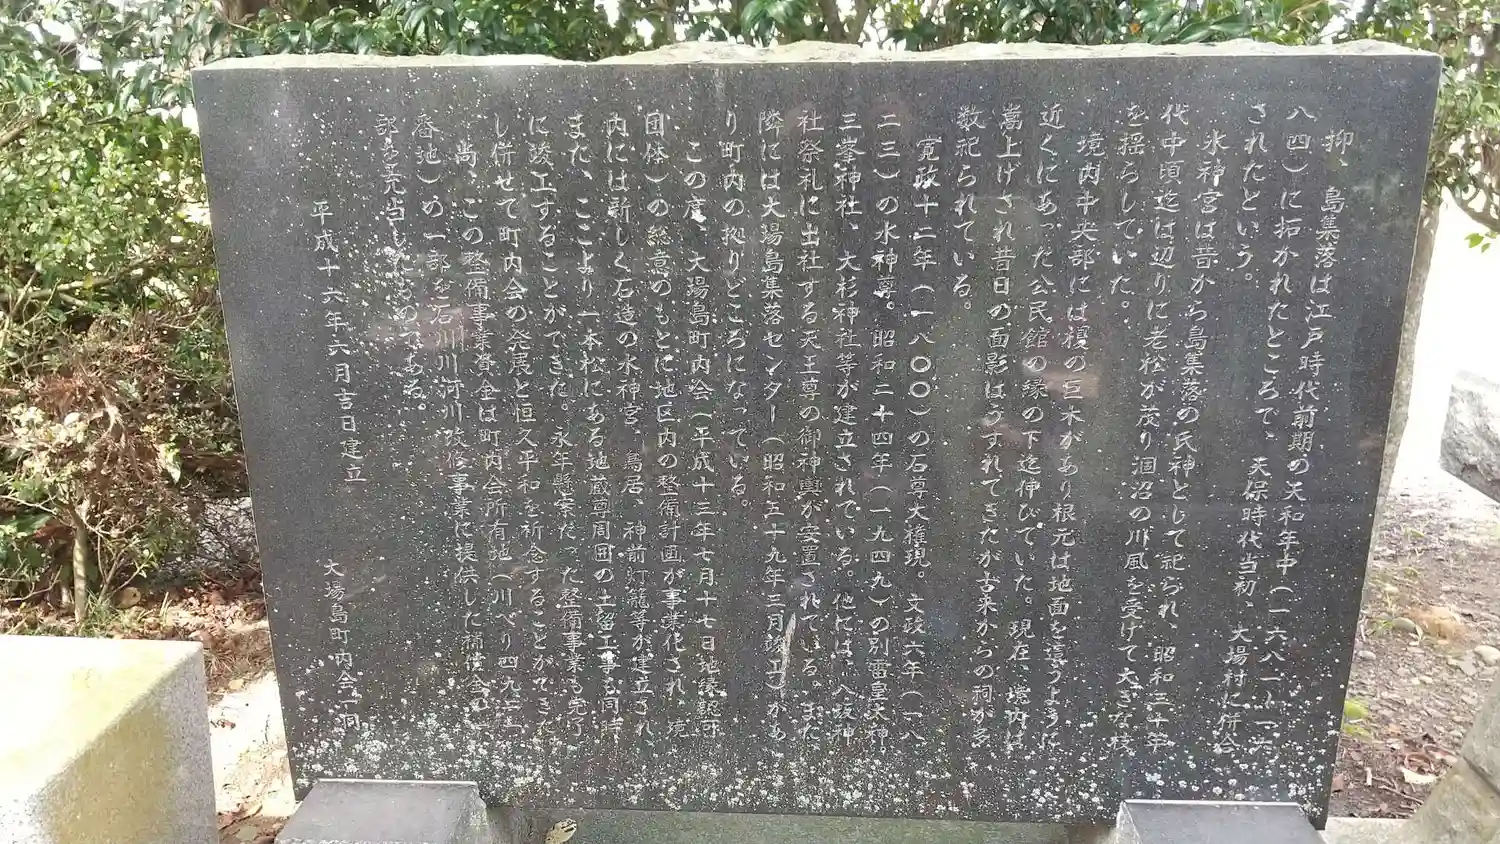 抑、島集落は江戸時代前期の天和年中(一六八一―一六
八四)に拓かれたところで、天保時代当初、大場村に併合
されたという。
水神宮は昔から島集落の氏神として祀られ、昭和三十年
代中頃迄は辺りに老松が茂り涸沼の川風を受けて大きな枝
を揺らしていた。
境内中央部には榎の巨木があり根元は地面を這うように
近くにあった公民館の縁の下迄伸びていた。現在、境内は
嵩上げされ昔日の面影はうすれてきたが古来からの祠が多
数祀られている。
寛政十二年(一八〇〇)の石尊大権現。文政六年(一八
二三)の水神尊。昭和二十四年(一九四九)の別雷皇太神。
三峯神社、大杉神社等が建立されている。他には、八坂神
社祭礼に出社する天王尊の御神輿が安置されている。また、
隣には大場島集落センター(昭和五十九年三月竣工)があ
り町内の拠りどころになっている。
この度、大場島町内会(平成十三年七月十七日地縁認可
団体)の総意のもとに地区内の整備計画が事業化され、境
内には新しく石造の水神宮、鳥居、神前灯籠等が建立され、
また、ここより一本松にある地蔵尊周囲の土留工事も同時
に竣工することができた。永年懸案だった整備事業も完了
し併せて町内会の発展と恒久平和を祈念することができた。
尚、この整備事業資金は町内会所有地(川べり四九三一
番地)の一部を石川川河川改修事業に提供した補償金の一
部を充当したものである。
平成十六年六月吉日建立
大場島町内会一同